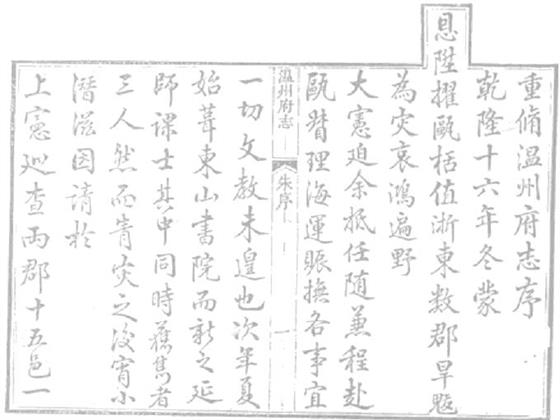 重脩温州府志序
乾隆十六年冬蒙
恩陞擢甌括值浙東數郡旱魃
為灾哀鴻遍野
大憲迫余抵任随兼程赴
甌督理海運賑撫各事宜
温州府志
朱序
一
一切文教未遑也次年夏
始葺東山書院而新之延
師課士其中同時雋者
三人然而眚灾之後宵小
潛滋因請於
上憲巡查兩郡十五邑一